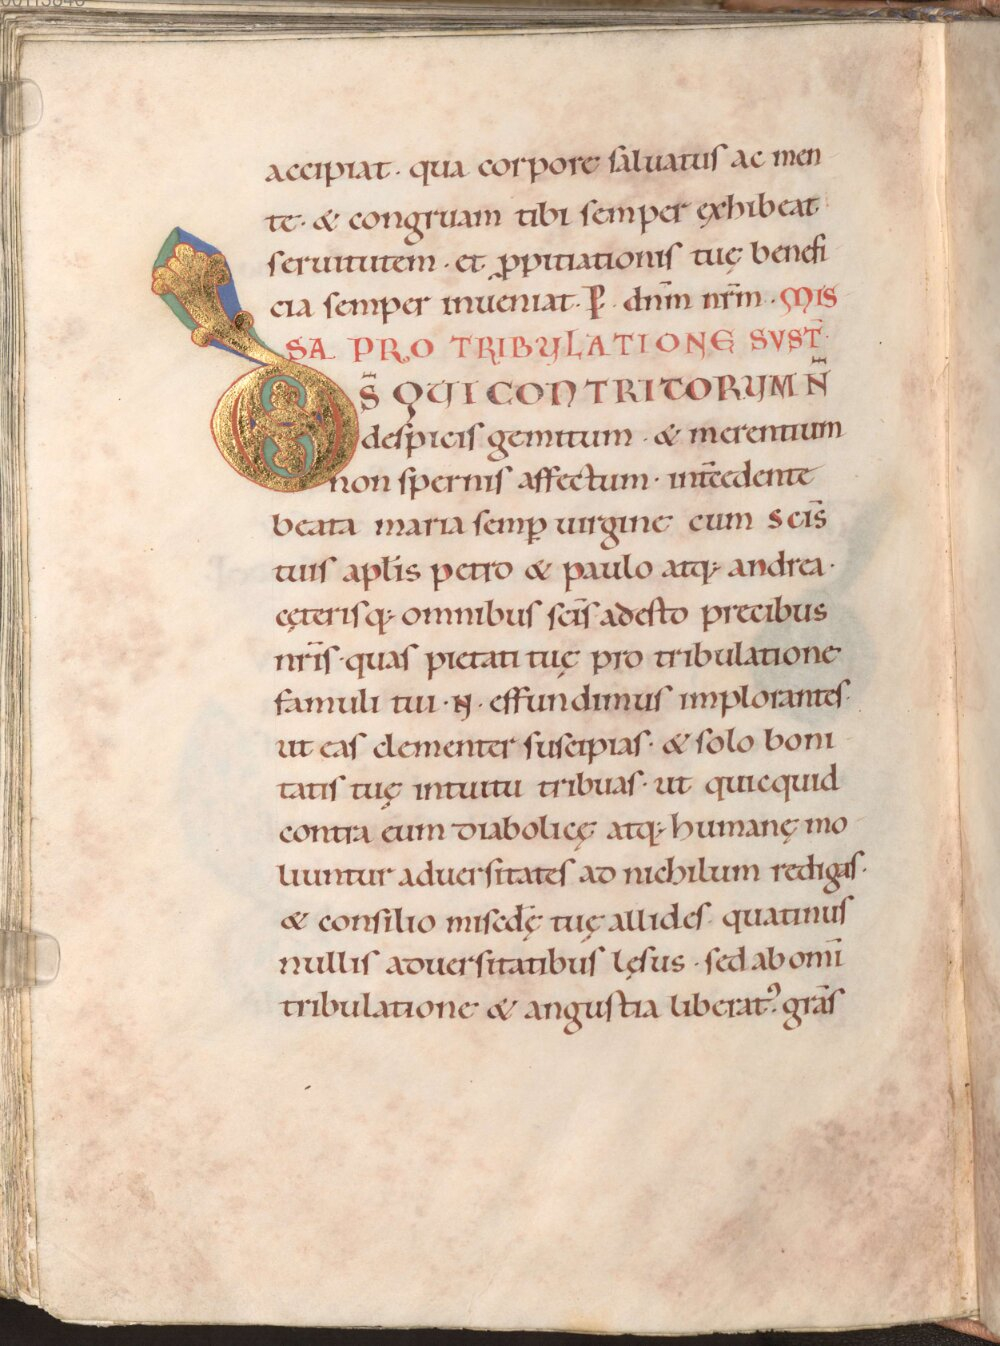 accipiat · qua corpore saluatus ac men
te · & congruam tibi semper exhibeat
seruitutem · et ꝓpitiationis tuę benefi
cia semper inueniat · P̄ · dn̄m nr̄m · MIS
SA PRO TRIBULATIONE SVST̄
DS̄ QUI CONTRITORUM N̄
despicis gemitum · & merentium
non spernis affectum · int̄cedente
beata maria semꝑ uirgine cum scīs
tuis apl̄is petro & paulo atq; andrea ·
cęterisq; omnibus scīs adesto precibus
nr̄is · quas pietati tuę pro tribulatione
famuli tui · N · effundimus implorantes ·
ut eas clementer suscipias · & solo boni
tatis tuę intuitu tribuas · ut quicquid
contra eum diabolicę atq; humanę mo
liuntur aduersitates ad nichilum redigas ·
& consilio misc̄dę tuę allides · quatinus
nullis aduersitatibus lęsus · sed ab omī
tribulatione & angustia liberatꝰ · grās